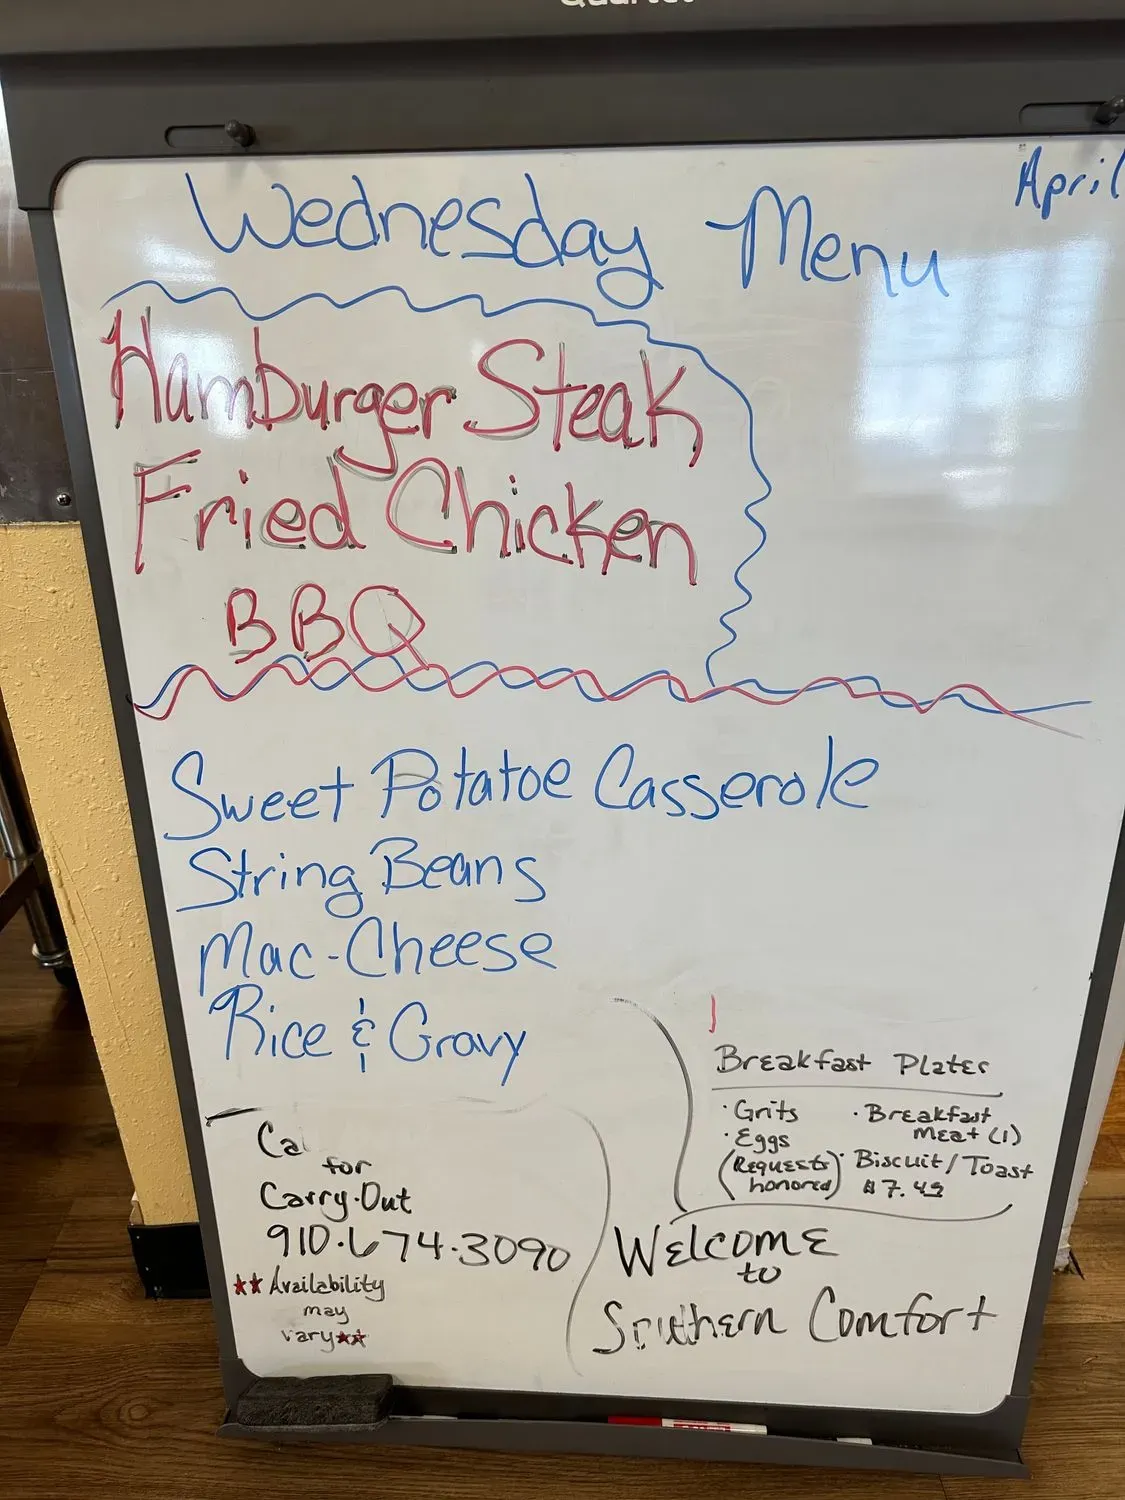 Wednesday Menu
April
Hamburger Steak
Fried Chicken
BBQ
Sweet Potatoe Casserole
String Beans
Mac-Cheese
Rice & Gravy
Breakfast Plates
· Grits
· Eggs
(Requests honored)
· Breakfast Meat (1)
· Biscuit/Toast
$7.49
for
Carry-Out
910·674·3090
** Availability
may
vary**
Welcome
to
Southern Comfort